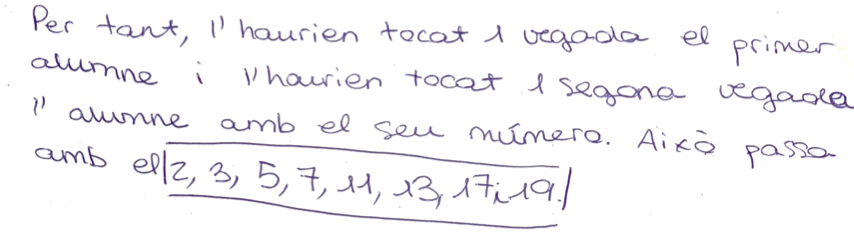 Per tant, l'haurien tocat 1 vegada el primer
alumne i l'haurien tocat 1 segona vegada
l'alumne amb el seu número. Això passa
amb el 2, 3, 5, 7, 11, 13, 17 i 19.